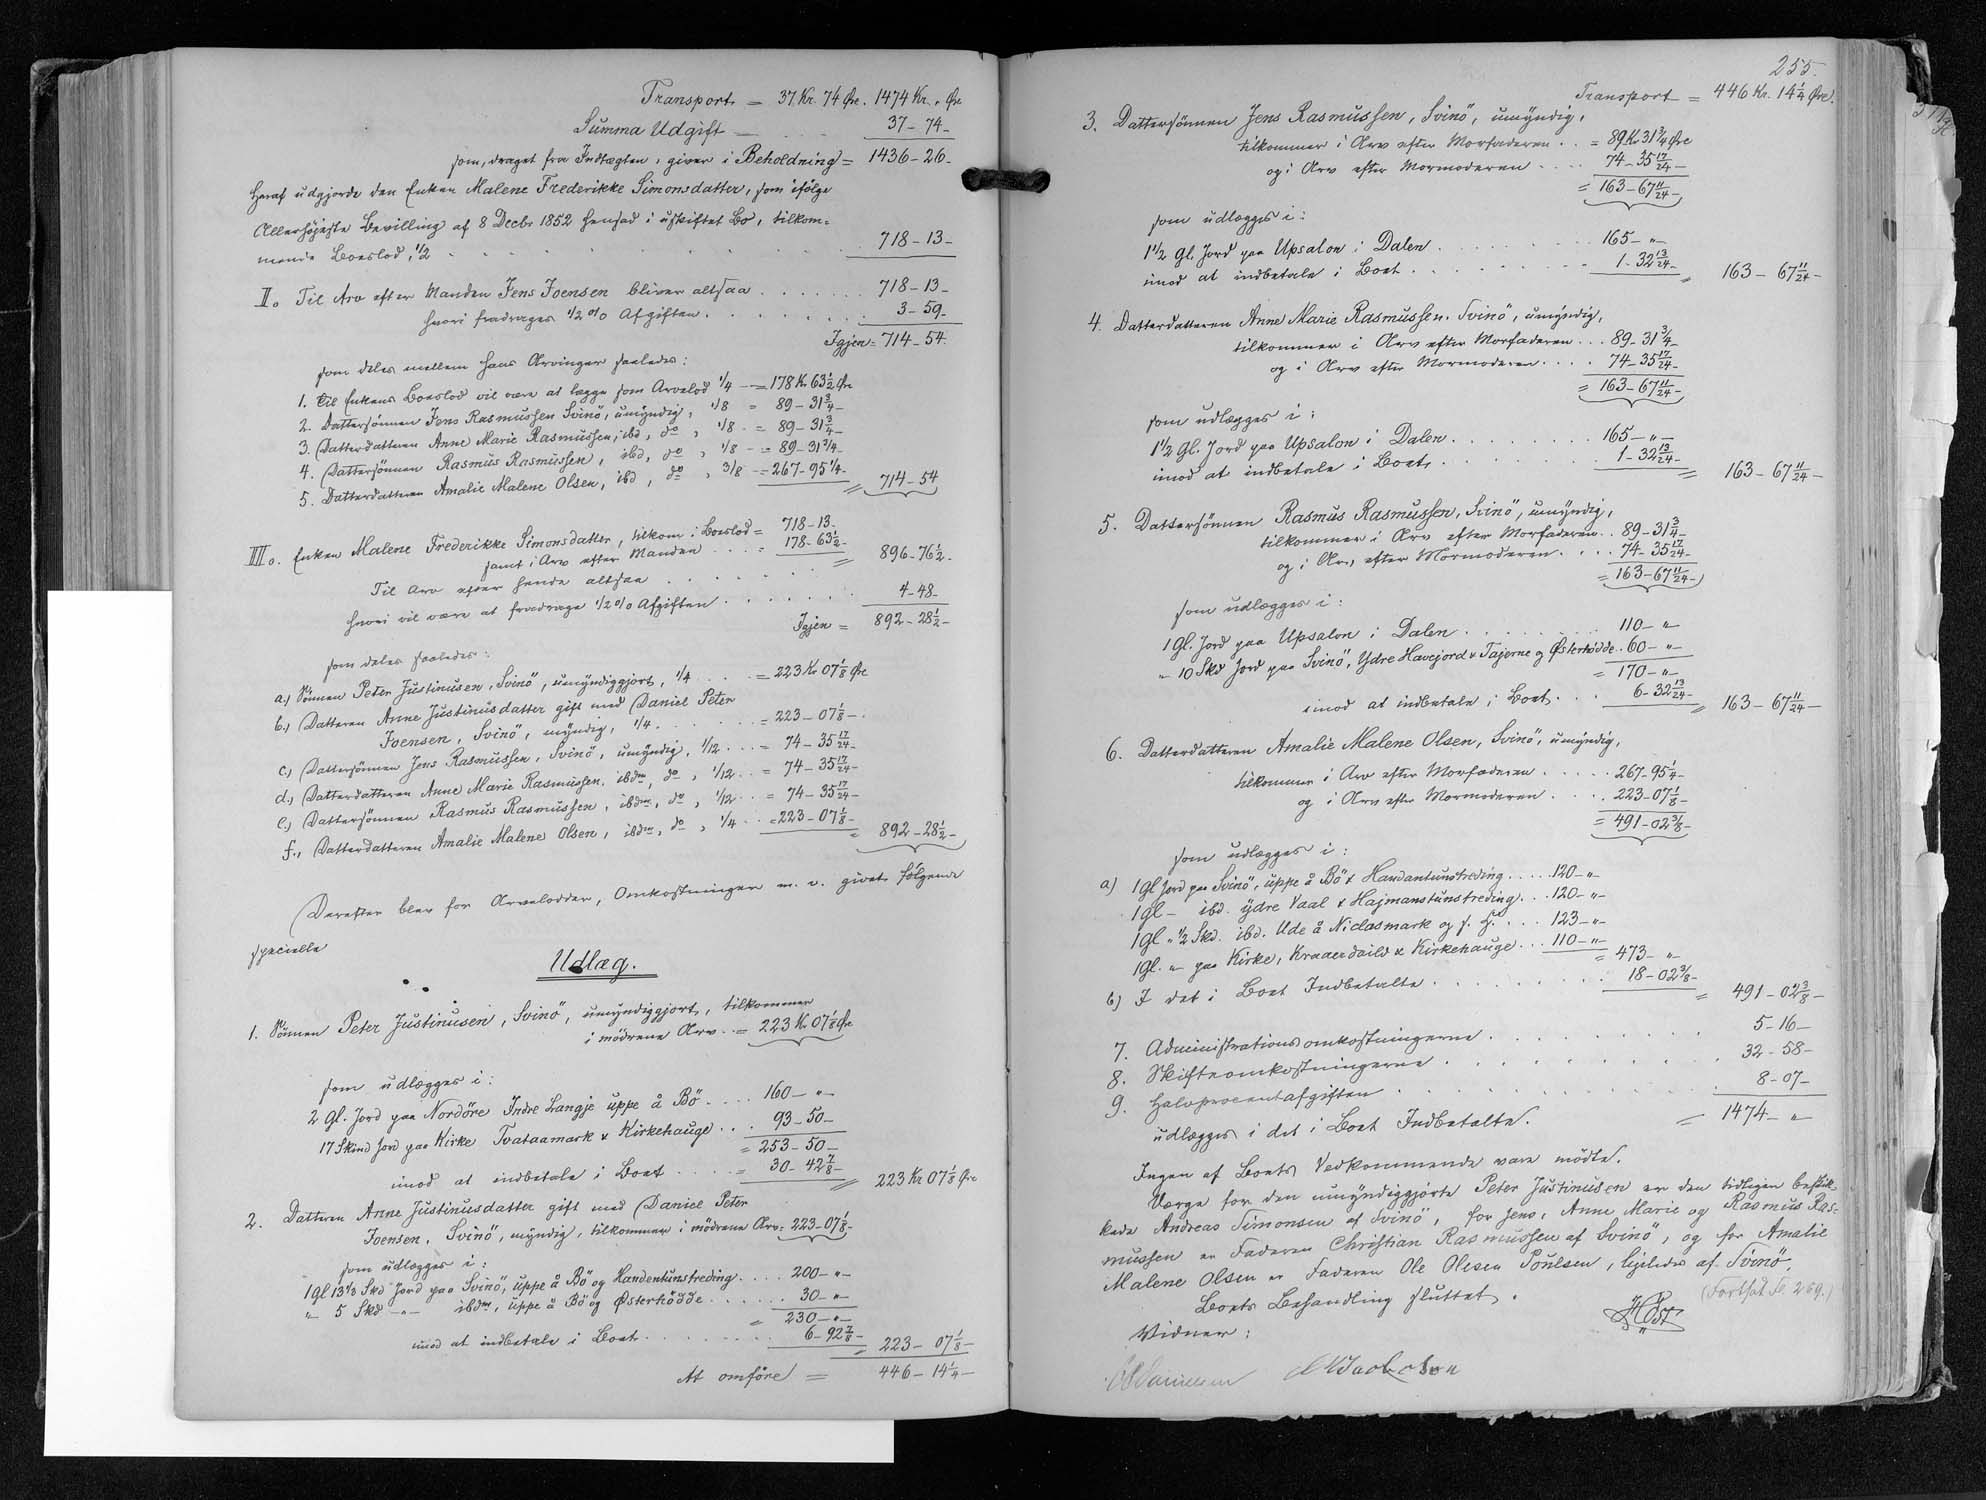 Transport = 37 Kr. 74 Øre. 1474 Kr. „ Øre
Summa Udgift — 37-74-
som, draget fra Indtægten, giver i Beholdning = 1436-26-
Heraf udgjorde den Enken Malene Frederikke Simonsdatter, som ifölge
Allerhöjeste Bevilling af 8 Decbr 1852 hensad i uskiftet Bo, tilkom=
mende Boeslod, 1/2 . . . 718-13-
II. Til Arv efter Manden Jens Joensen bliver altsaa . . . 718-13-
hvori fradrages 1/2 % Afgiften . . . 3-59-
Igjen = 714-54.
som deles mellem hans Arvinger saaledes:
1. Til Enkens Boeslod vil være at lægge som Arvelod 1/4 — = 178 Kr 63 1/2 Øre
2. Dattersönnen Jens Rasmussen Svinö, umyndig, 1/8 = 89-31 3/4-
3. Datterdatteren Anne Marie Rasmussen, ibd, do, 1/8 - = 89-31 3/4-
4. Dattersönnen Rasmus Rasmussen, ibd, do, 1/8 - = 89-31 3/4-
5. Datterdatteren Amalie Malene Olsen, ibd, do, 3/8 - = 267-95 1/4- = 714-54
III. Enken Malene Frederikke Simonsdatter, tilkom i Boeslod = 718-13-
samt i Arv efter Manden . . . = 178-63 1/2-
Til Arv efter hende altsaa . . . = 896-76 1/2-
hvori vil være at fradrage 1/2 % Afgiften . . . 4-48-
Igjen = 892-28 1/2-
som deles saaledes:
a.) Sönnen Peter Justinusen, Svinö, umyndiggjort, 1/4 . . . = 223 Kr 07 1/8 Øre
b.) Datteren Anne Justinusdatter gift med Daniel Peter
Joensen, Svinö, myndig, 1/4 . . . = 223-07 1/8-
c.) Dattersönnen Jens Rasmussen, Svinö, umyndig, 1/12 . . = 74-35 17/24-
d.) Datterdatteren Anne Marie Rasmussen, ibdm, do, 1/12 . . = 74-35 17/24-
e.) Dattersönnen Rasmus Rasmussen, ibdm, do, 1/12 . . = 74-35 17/24-
f., Datterdatteren Amalie Malene Olsen, ibdm, do, 1/4 . . = 223-07 1/8- = 892-28 1/2-
Derefter blev for Arvelodder, Omkostninger m. v. givet følgende
specielle
Udlæg.
1. Sönnen Peter Justinusen, Svinö, umyndiggjort, tilkommer
i mödrene Arv . = 223 Kr 07 1/8 Øre
som udlægges i:
2 Gl. Jord paa Nordöre Indre Langje uppe å Bö . . . 160-„-
17 Skind Jord paa Kirke Tvataamark & Kirkehauge . . . 93-50-
= 253-50-
imod at indbetale i Boet . . . = 30-42 7/8- = 223 Kr 07 1/8 Øre
2. Datteren Anne Justinusdatter gift med Daniel Peter
Joensen, Svinö, myndig, tilkommer i mödrene Arv = 223-07 1/8-
som udlægges i:
1 Gl 13 1/3 Skd Jord paa Svinö, uppe å Bö og Handentunstreding . . . 200-„-
„ 5 Skd -„- ibdm, uppe å Bö og Østerhödde . . . 30-„-
= 230-„-
imod at indbetale i Boet . . . 6-92 7/8- = 223-07 1/8-
At omföre = 446-14 1/4-
255.
Transport = 446 Kr. 14 1/4 Øre.
3. Dattersönnen Jens Rasmussen, Svinö, umyndig,
tilkommer i Arv efter Morfaderen . . = 89 Kr 31 3/4 Øre
og i Arv efter Mormoderen . . . 74-35 17/24-
= 163-67 11/24-
som udlægges i:
1 1/2 Gl. Jord paa Upsalon i Dalen . . . 165-„-
imod at indbetale i Boet . . . 1-32 13/24- = 163-67 11/24-
4. Datterdatteren Anne Marie Rasmussen, Svinö, umyndig,
tilkommer i Arv efter Morfaderen . . . 89-31 3/4-
og i Arv efter Mormoderen . . . 74-35 17/24-
= 163-67 11/24-
som udlægges i:
1 1/2 Gl. Jord paa Upsalon i Dalen . . . 165-„-
imod at indbetale i Boet . . . 1-32 13/24- = 163-67 11/24-
5. Dattersönnen Rasmus Rasmussen, Svinö, umyndig,
tilkommer i Arv efter Morfaderen . . 89-31 3/4-
og i Arv efter Mormoderen . . . 74-35 17/24-
= 163-67 11/24-
som udlægges i:
1 Gl. Jord paa Upsalon i Dalen . . . 110-„-
„ 10 Skd Jord paa Svinö, Ydre Havejord v Tajerne og Østerhödde . . 60-„-
= 170-„-
imod at indbetale i Boet . . . 6-32 13/24- = 163-67 11/24-
6. Datterdatteren Amalie Malene Olsen, Svinö, umyndig,
tilkommer i Arv efter Morfaderen . . . 267-95 1/4-
og i Arv efter Mormoderen . . . 223-07 1/8-
= 491-02 3/8-
som udlægges i:
a) 1 Gl Jord paa Svinö, uppe å Bö & Handantunstreding . . . 120-„-
1 Gl - ibd. ydre Vaal & Hajmanstunstreding . . . 120-„-
1 Gl „ 1/2 Skd. ibd. Ude å Niclasmark og f. H. . . . 123-„-
1 Gl. „ paa Kirke, Kraaerdaild & Kirkehauge . . . 110-„- = 473-„-
b) I det i Boet Indbetalte . . . 18-02 3/8- = 491-02 3/8-
7. Administrationsomkostningerne . . . 5-16-
8. Skifteomkostningerne . . . 32-58-
9. Halvprocentafgiften . . . 8-07-
udlægges i det i Boet Indbetalte. = 1474-„
Ingen af Boets Vedkommende vare mödte.
Værge for den umyndiggjorte Peter Justinusen er den tidligere beskik
kede Andreas Simonsen af Svinö, for Jens, Anne Marie og Rasmus Ras=
mussen er Faderen Christian Rasmussen af Svinö, og for Amalie
Malene Olsen er Faderen Ole Olesen Poulsen, ligeledes af Svinö.
Boets Behandling sluttet.
(Fortsat Fo. 269.)
Vidner:
HØst
Jacobsen